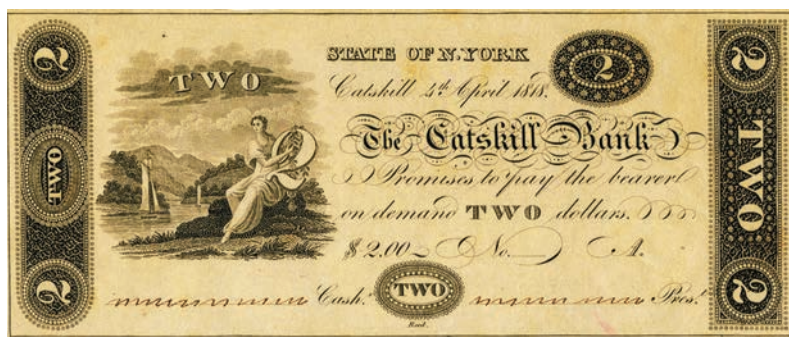 2
TWO
2
TWO
STATE OF N.YORK
2
Catskill 4th April 1818.
The Catskill Bank
Promises to pay the bearer
on demand TWO dollars.
$ 2.00 No. A.
Cashr. TWO Prest.
Reed.
2
TWO
2